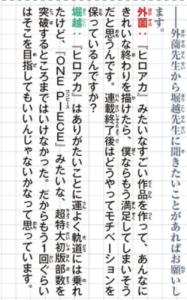 ――外薗先生から堀越先生に聞きたいことがあればお願いし
ます。
外薗：『ヒロアカ』みたいなすごい作品を作って、あんなに
きれいな終わりを描けたら、僕なら満足してしまいそう
だと思うんです。連載終了後はどうやってモチベーションを
保っているんですか？
堀越：『ヒロアカ』はありがたいことに運よく軌道には乗れ
たけど、『ONE PIECE』みたいな、超特大初版部数を
突破するところまではいけなかった。だからもう1回ぐらい
はそこを目指してもいいんじゃないかなって思っています。